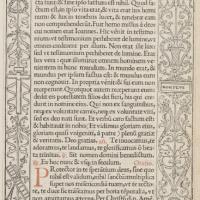 cta sunt: & sine ipso factum est nihil. Quod fa
ctum est, in ipso vita erat, & vita erat lux homi
num: & lux in tenebris lucet, & tenebre eam
non comprehenderūt. Fuit homo missus a deo
cui nomen erat Ioannes. Hic venit in testimo
nium vt testimonium perhiberet de lumine, vt
omnes crederent per illum. Non erat ille lux:
sed vt testimonium perhiberet de lumine. Erat
lux vera que illuminat omnem hominem ve
nientem in hunc mundum. In mundo erat, &
mundus per ipsum factus est: & mundus eum
non cognouit. In propria venit: & sui eum non
receperunt. Quotquot autem receperunt eum:
dedit eis potestatem filios dei fieri, his qui cre
dunt in nomine eius. Qui non ex sanguinibus,
neque ex voluntate carnis, neque ex voluntate viri,
sed ex deo nati sunt. Et verbū caro factum est:
& habitauit in nobis. Et vidimus gloriam eius,
gloriam quasi vnigeniti, a patre: plenū gratie
& veritatis. Deo gratias. Te inuocamus, te
adoramus, te laudamus, te glorificamus o bea
ta trinitas. Sit nomen domini benedictum.
Ex hoc nunc & vsq; in seculum. Oratio.
Protector in te sperantium deus, sine quo
nihil est validum, nihil sanctum: multiplica
super nos misericordiā tuam, vt te
sic transeamus per bona temporalia, vt
non amittamus eterna. Per Christū d. n. Amē.
NON PLVS